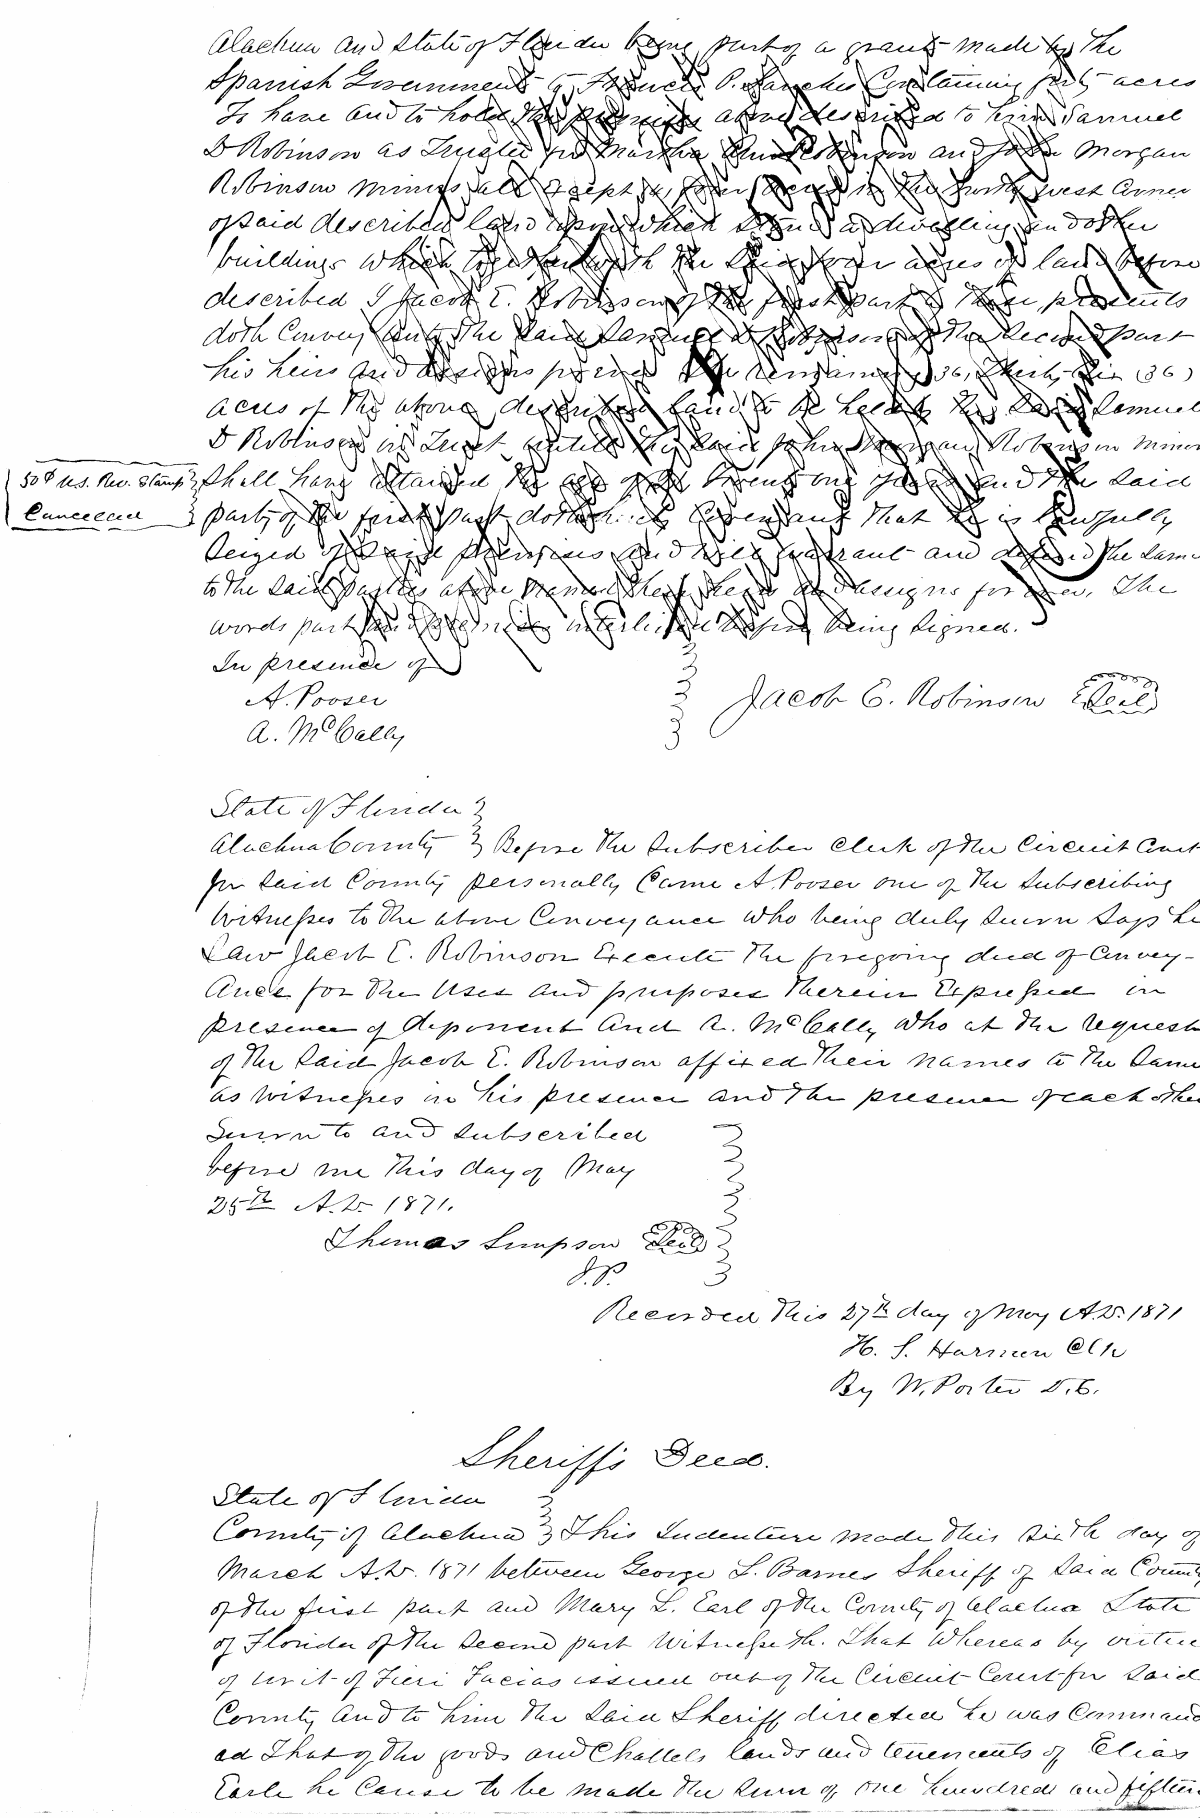 Alachua and State of Florida being part of a grant made by the
Spanish Government to Francis P. Sanches Containing forty acres
To have and to hold the premises above described to him Samuel
D Robinson as Trustee for Martha Ann Robinson and John Morgan
Robinson minors all except four acres in the north west Corner
of said described land upon which stand a dwelling and other
buildings which together with the said four acres of land before
described I Jacob E. Robinson of the first part by these presents
doth Convey unto the said Samuel D Robinson of the second part
his heirs and assigns forever the remaining 36, Thirty Six (36)
acres of the above described land to be held by the said Samuel
D Robinson in Trust untill the said John Morgan Robinson minor
50¢ U.S. Rev. Stamp
Cancelled
shall have attained the age of twenty one years and the said
party of the first part doth hereby Covenant that he is lawfully
Seized of said premises and will warrant and defend the same
to the said parties above named their heirs and assigns forever. The
words part and premises interlined before being signed.
In presence of
A. Pooser
A. McCally
Jacob E. Robinson Seal
State of Florida
Alachua County Before the Subscriber Clerk of the Circuit Court
for said County personally Came A. Pooser one of the subscribing
Witnesses to the above Conveyance who being duly sworn says he
saw Jacob E. Robinson Execute the foregoing deed of Convey-
ance for the Uses and purposes therein Expressed in
presence of deponent and A. McCally who at the request
of the said Jacob E. Robinson affixed their names to the same
as witnesses in his presence and the presence of each other
Sworn to and subscribed
before me this day of May
25th A.D. 1871.
Thomas Simpson Seal
J.P.
Recorded this 27th day of May A.D. 1871
H. S. Harmon Clk
By W. Porter D.C.
Sheriff's Deed.
State of Florida
County of Alachua This Indenture made this sixth day of
March A.D. 1871 between George L. Barnes Sheriff of said County
of the first part and Mary L. Earl of the County of Alachua State
of Florida of the second part Witnesseth. That Whereas by virtue
of writ of Fieri Facias issued out of the Circuit Court for said
County and to him the said Sheriff directed he was Command
ed That of the goods and Chattels lands and tenements of Elias
Earle he Cause to be made the sum of one hundred and fifteen